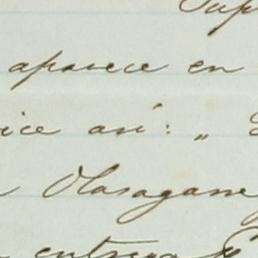 Sup
aparece en
ice así: „
Olasagarre
entrega